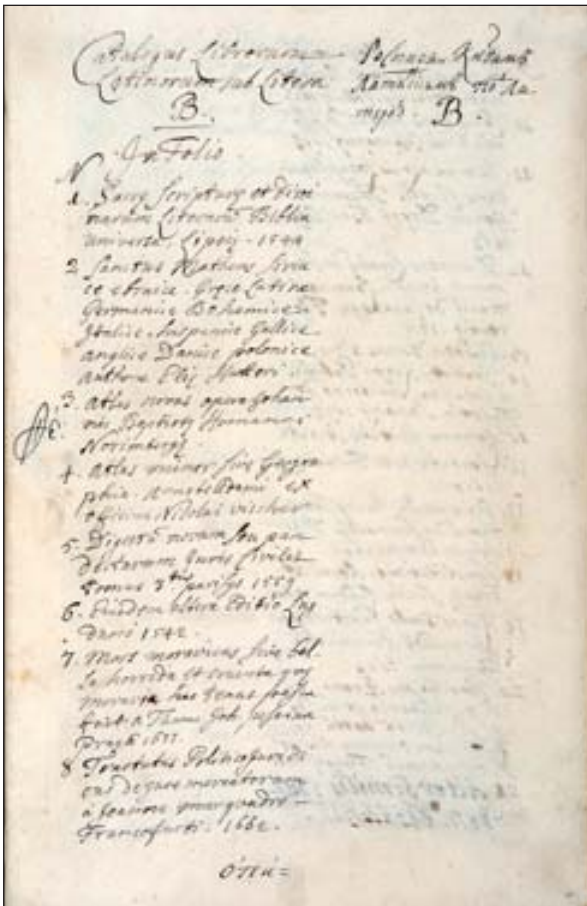 Catalogus Librorum
Latinorum sub Litera
B.
Роспись
B.
In Folio
N
1. Sacrę Scripturę et divi
narum Literarum Biblia
universa. Lipsię. 1544
2. Sanctus Matheus siria
ce ebraice. Gręce Latine
Germanice Bohemice
Italice. Hispanice Gallice
anglice Danice polonice
authore Elię Hutteri.
3. Atlas novus opera Johan
nis Baptistę Homanni
Norimbergę
4. Atlas minor sive Geogra
phia. Amstelodami ex
officina Nicolai visscher
5. Digestū novum seu pan
dectarum Juris Civilis
Tomus 3tius parisijs 1559
6. Eiusdem altera Editio Lug
duni 1542.
7. Mars moravicus sive bel
la horrida et cruenta quę
moravia hac tenus passa
fuit. A Thoma Joh. pessina
Pragę 1677
8 Tractatus Politico juridi
cus de jure mercatorum
a Joanne marquardo
Francofurti. 1662.